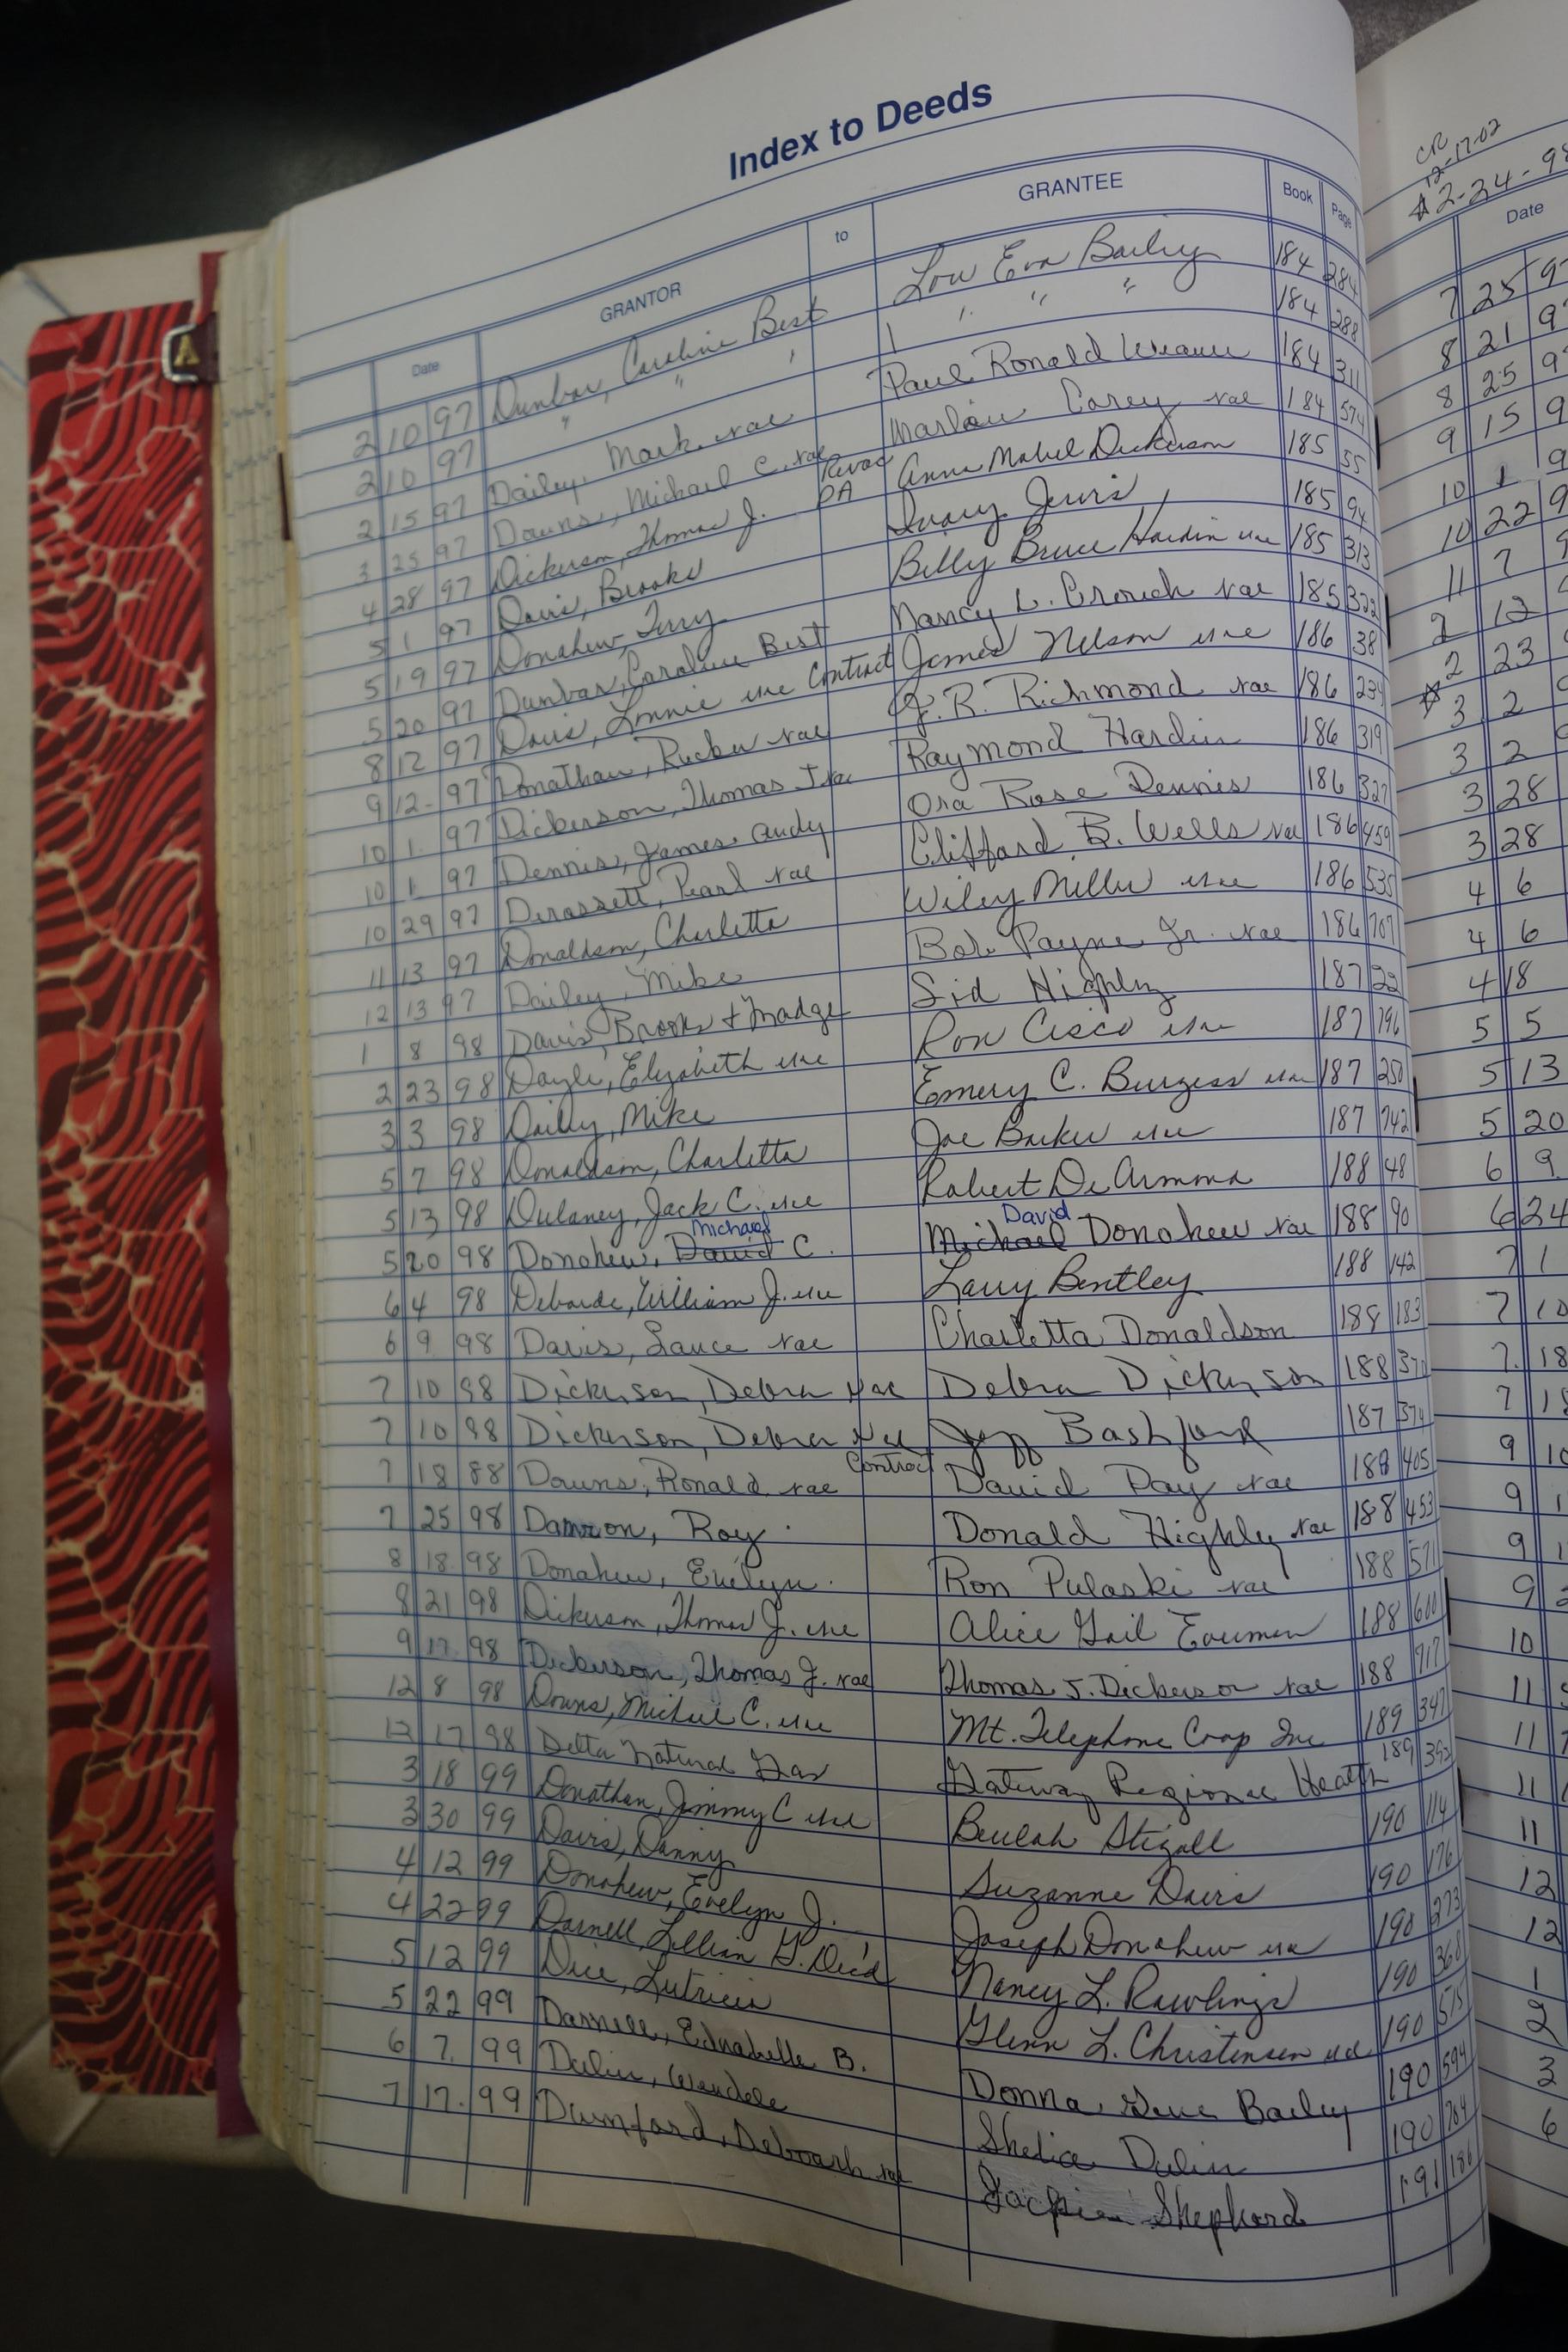 Index to Deeds
Date GRANTOR to GRANTEE Book Page
2 10 97 Dunbar, Caroline Best Lou Eva Bailey 184 284
2 10 97 " " " " " " 184 288
2 15 97 Dailey, Mark xae Paul Ronald 184 311
3 25 97 Downs, Michael C. xae Corey xae 184 574
4 28 97 Dickerson, Thomas J. Revoc PA Anna Mabel Dickerson 185 55
5 1 97 Davis, Brooks Lewis 185 94
5 19 97 Donahew, Terry Billy Bruce Hardin uxe 185 313
5 20 97 Dunbar, Caroline Best Nancy L. Crouch xae 185 322
8 12 97 Davis, Lonnie uxe Contract James Nelson uxe 186 38
9 12 97 Donathan, Rucker xae J. R. Richmond xae 186 234
10 1 97 Dickerson, Thomas J xae Raymond Hardin 186 319
10 1 97 Dennis, James Andy Ora Rose Dennis 186 327
10 29 97 Derossett, Pearl xae Clifford B. Wells xae 186 459
11 13 97 Donaldson, Charletta Wiley Miller uxe 186 535
12 13 97 Dailey, Mike Bob Payne Jr. xae 186 707
1 8 98 Davis, Brooks + Madge Sid Highley 187 22
2 23 98 Doyle, Elizabeth uxe Ron Cisco uxe 187 196
3 3 98 Dailey, Mike Emery C. Burgess uxe 187 250
5 7 98 Donaldson, Charletta Joe Barker uxe 187 742
5 13 98 Dulaney, Jack C. uxe Robert De Armond 188 48
Michael David
5 20 98 Donahew, David C. Michael Donahew xae 188 90
6 4 98 Deborde, William J. uxe Larry Bentley 188 142
6 9 98 Davis, Lance xae Charletta Donaldson 188 183
7 10 98 Dickerson, Debra xae Debra Dickerson 188 370
7 10 98 Dickerson, Debra xae Jeff Bashford 187 374
7 18 88 Downs, Ronald xae Contract David Day xae 188 405
7 25 98 Damron, Roy Donald Highley xae 188 453
8 18 98 Donahew, Evelyn Ron Pulaski xae 188 571
8 21 98 Dickerson, Thomas J. uxe Alice Gail 188 600
9 17 98 Dickerson, Thomas J. xae Thomas J. Dickerson xae 188 917
12 8 98 Downs, Michael C. uxe Mt. Telephone Coop Inc 189 347
12 17 98 Delta Natural Gas Gateway Regional Heath 189 392
3 18 99 Donathan, Jimmy C uxe Beulah Stigall 190 114
3 30 99 Davis, Danny Suzanne Davis 190 176
4 12 99 Donahew, Evelyn J. Joseph Donahew uxe 190 273
4 22 99 Darnell, Lillian G. Dec'd Nancy L. Rawlings 190 368
5 12 99 Dice, Lutricia Glenn L. Christensen uxe 190 515
5 22 99 Darnell, Ednabelle B. Donna Bailey 190 594
6 7 99 Dulin, Wendele Shelia Dulin 190 704
7 17 99 Dumford, Deboarh xae Jackie Shepherd 191 186
CR
12-17-02
2-24-98
Date
7 25 97
8 21 9
8 25 9
9 15 9
10 1 9
10 22 9
11 7 9
2 12
2 23
3 2
3 2
3 28
3 28
4 6
4 6
4 18
5 5
5 13
5 20
6 9
6 24
7 1
7 10
7 18
7 18
9 10
9 1
9 1
9
10
11
11
11
11
12
12
1
2
3
6